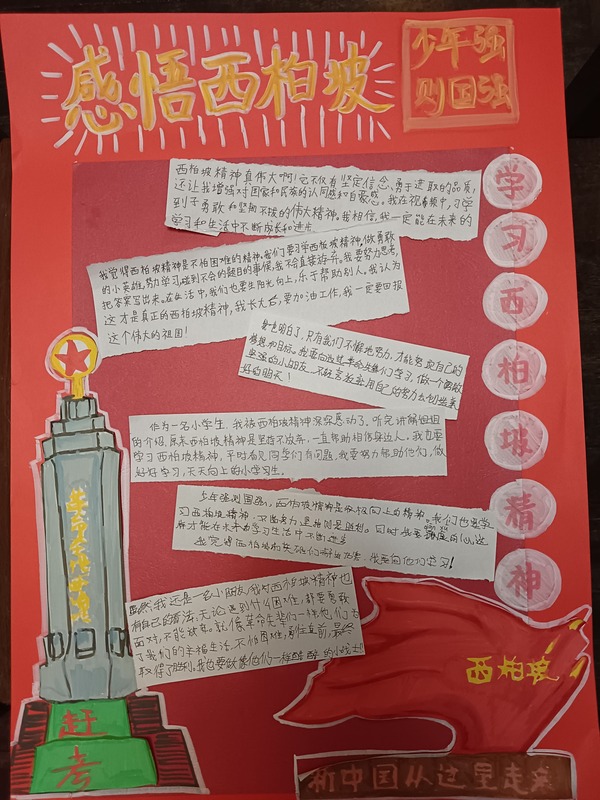 感悟西柏坡
少年强
则国强
学
习
西
柏
坡
精
神
西柏坡精神真伟大啊!它不仅有坚定信念、勇于进取的品质,
还让我增强对国家和民族的认同感和自豪感。我在视频中,习学
到于勇敢和坚韧不拔的伟大精神。我相信,我一定能在未来的
学习和生活中不断成长和进步
我觉得西柏坡精神是不怕困难的精神。我们要习学西柏坡精神,做勇敢
的小英雄,努力学习,碰到不会的题目的事候,我不会直接放弃。我要努力思考,
把答案写出来。在生活中,我们也要生阳光向上,乐于帮助别人。我认为
这才是真正的西柏坡精神,我长大后,要加油工作,我一定要回报
这个伟大的祖国!
我也明白了,只有我们不懈地努力,才能实现自己的
梦想和目标。我要向这些革命先辈们学习,做一个勇敢
坚强的小朋友,不轻言放弃,用自己的努力去创造美
好的明天!
作为一名小学生,我被西柏坡精神深深感动了。听完讲解姐姐
的介绍,原来西柏坡精神是坚持不放弃,一直帮助相信身边人。我也要
学习西柏坡精神,平时看见同学们有问题,我要努力帮助他们,做
好好学习,天天向上的小学习生。
少年强则国强,西柏坡精神是积极向上的精神,我们也要学
习西柏坡精神
才能在未来的学习生活中不断进步
我觉得西柏坡的英雄们
我要向他们学习!
虽然我还是一名小朋友,我对西柏坡精神也
有自己的看法,无论遇到什么困难,都要勇敢
面对,不能放弃。就像革命先辈们一样,他们为
了我们的幸福生活,不怕困难,勇往直前,最终
取得了胜利。我也要做像他们一样
的小战士!
赶
考
西柏坡
新中国从这里走来